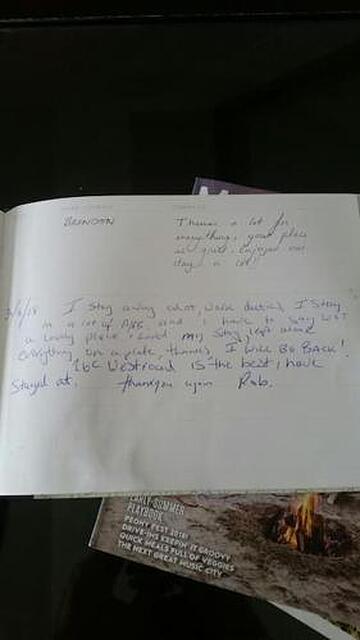 BRENDON
Thanks a lot for
everything, your place
is quiet, enjoyed our
stay a lot!
I stay away alot, work duties, I stay
in a lot of B/BS, and I have to say WOT
a lovely place I loved my stay, left alone
everything on a plate, thanks, I WILL BE BACK!
16c Westroad IS the best, I have
stayed at. thankyou again Rob.
EARLY-SUMMER
PLAYBOOK
PEONY FEST 2018!
DRIVE-INS KEEPIN' IT GROOVY
QUICK MEALS FULL OF VEGGIES
THE NEXT GREAT MUSIC CITY